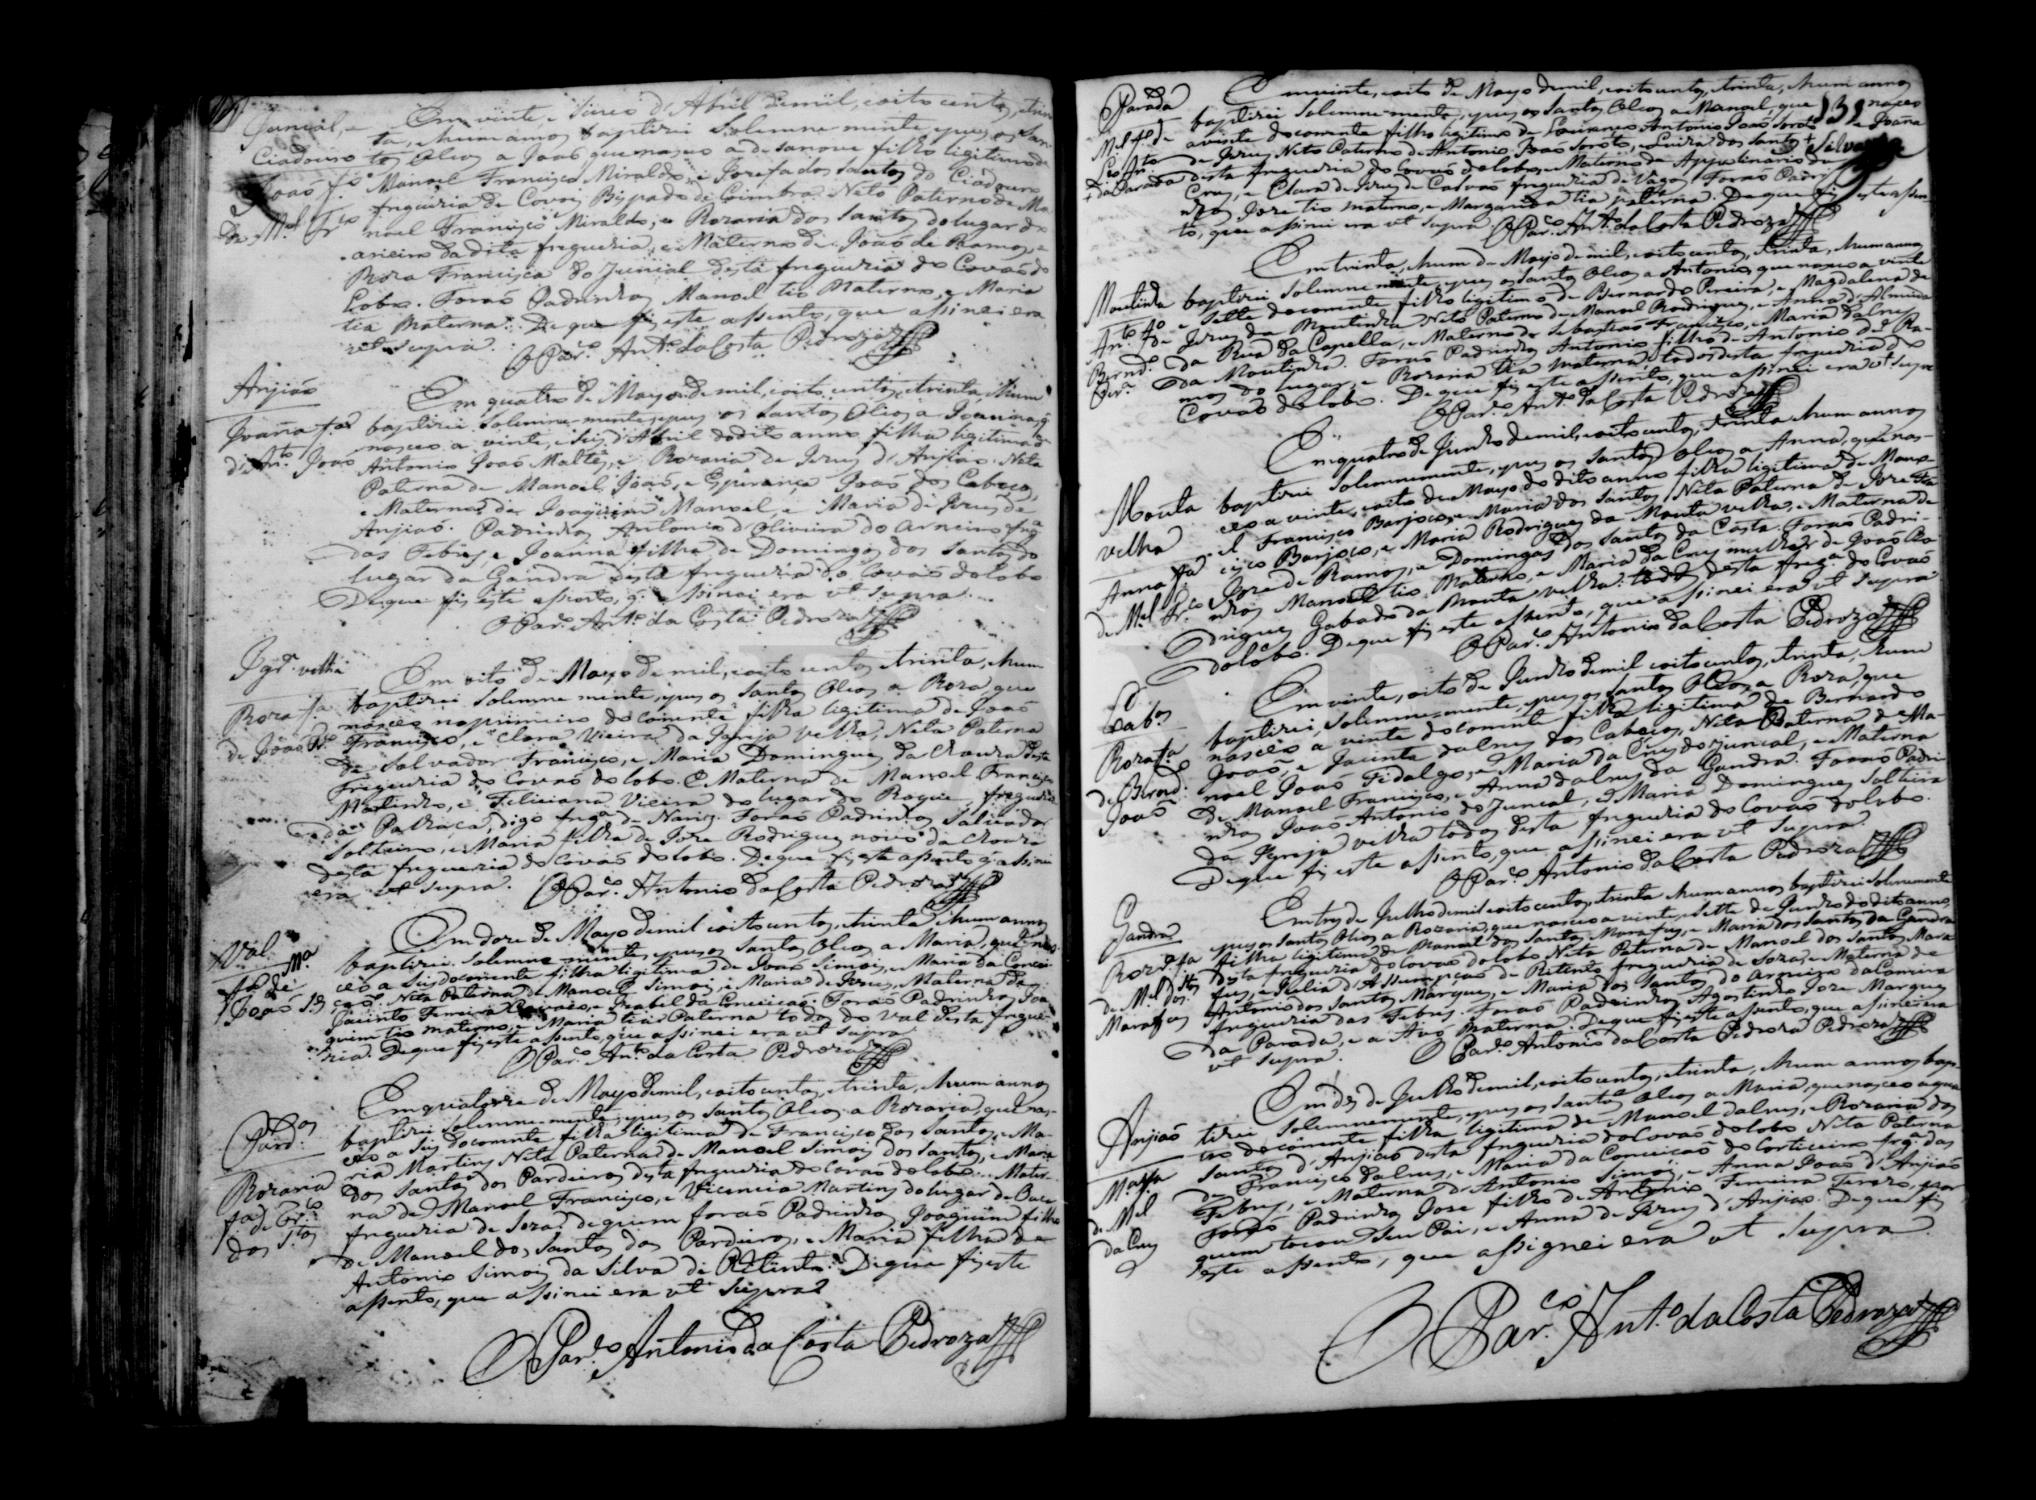 Juncal, e
Ciadouro
João fº
de Mel Frco
Em vinte, e sinco d'Abril demil, oito centos, trin
ta, e hum annos baptizei Solemne mente, e pus os San
tos Oleos a João que nasceo a desanove filho ligitimo de
Manoel Francisco Miraldo, e Jozefa dos Santos do Ciadouro
freguezia de Covões Bispado de Coimbra. Neto Paterno de Ma
noel Francisco Miraldo, e Rozaria dos Santos do lugar do
arieiro da dita freguezia, e Materno de João de Ramos, e
Roza Francisca do Juncal desta freguezia de Covão do
Lobo. Forão Padrinhos Manoel tio Materno, e Maria
tia Materna. De que fiz este assento, que assinei era
ut supra.
O Parº. Antº. da Costa Pedroza
Anjião
Joanna fa
d'Anto João
Em quatro de Mayo demil, oito centos, e trinta, e hum
baptizei Solemne-mente, e pus os Santos Oleos a Joanna q
nasceo a vinte, e seis d'Abril do dito anno filha ligitima de
Antonio João Maltez, e Rozaria de Jezus d'Anjião. Neta
Paterna de Manoel João, e Esperança João dos Cabeços,
e Materna de Joaquim Manoel, e Maria de Jezus de
Anjião. Padrinhos Antonio d'Oliveira do Arneiro frga
das Febres, e Joanna filha de Domingos dos Santos do
lugar da Gandra desta freguezia do Covão do Lobo
De que fiz este assento, q assinei era ut supra.
O Parº. Antº. da Costa Pedroza
Igrª. velha
Roza fa.
de João Frº
Em oito de Mayo de mil, oito centos, e trinta, e hum
baptizei Solemne mente, e pus os Santos Oleos a Roza, que
nasceo no primeiro do corrente filha ligitima de João
Francisco, e Clara Vieira da Igreja velha, Neta Paterna
de Salvador Francisco, e Maria Domingues da Chouza desta
freguezia de Covão do Lobo. E Materna de Manoel Francisco
Martinho, e Feliciana Vieira do lugar do Roque, freguezia
da Palhaça, digo frega de Nariz. Forão Padrinhos Salvador
Solteiro, e Maria filha de Joze Rodrigues novo da Chouza
desta freguezia de Covão do Lobo. De que fiz este assento q assinei
era ut supra.
O Parº. Antonio da Costa Pedroza
Val.
Ma
fa de
João Sim
Em doze de Mayo demil, oito centos, e trinta, e hum annos
baptizei Solemne mente, e pus os Santos Oleos a Maria, que nas
ceo a seis do corrente filha ligitima de João Simões, e Maria da Concei
ção. Neta Paterna de Manoel Simões, e Maria de Jezus, Materna de
Jacinto Ferreira, e Izabel da Conceição. Forão Padrinhos Joa
quim tio materno, e Maria tia Paterna todos do Val desta fregue
zia. De que fiz este assento, que assinei era ut supra
O Parº. Antº. da Costa Pedroza
Pard.os
Rozaria
fa de Frco
dos Stos
Em quatorze de Mayo demil, oito centos, e trinta, e hum annos
baptizei Solemne-mente, e pus os Santos Oleos a Rozaria, que nas-
ceo a seis do corrente filha ligitima de Francisco dos Santos, e Ma-
ria Martins Neta Paterna de Manoel Simões dos Santos, e Maria
dos Santos dos Pardieiros desta freguezia do Covão do Lobo. Mater-
na de Manoel Francisco, e Vicencia Martins do lugar de
freguezia de Soza, de quem forão Padrinhos Joaquim filho
de Manoel dos Santos dos Pardieiros, e Maria filha de
Antonio Simões da Silva de Rítento. De que fiz este
assento, que assinei era ut supra
O Parco Antonio da Costa Pedroza
Parada
Mel fº de
Lço Anto
da Parada
Em vinte, e oito de Mayo demil, oito centos, e trinta, e hum annos
baptizei Solemne mente, e pus os Santos Oleos a Manoel que nasceo
131
a vinte do corrente filho ligitimo de Lourenço Antonio João Soroto, e Joana
de Jezus, Neto Paterno de Antonio João Soroto, e Luiza dos Santos e Silva
desta freguezia do Covão do Lobo, e Materno de Apolinario da
Cruz, e Clara de Jezus de Calvão freguezia de Vagos. Forão Padri
nhos Joze tio materno, e Margarida tia paterna. De que fiz este assen-
to, que assinei era ut supra O Parº. Antº. da Costa Pedroza
Moutinha
Anto fº
Bernd.
Per.ª
Em trinta, e hum de Mayo de mil, oito centos, e trinta, e hum annos
baptizei Solemne mente, e pus os Santos Oleos a Antonio, que nasceo a vinte
e sette do corrente filho ligitimo de Bernardo Pereira, e Magdalena de
Jezus da Moutinha Neto Paterno de Manoel Rodrigues, e Anna d'Almeida
da Rua da Capella, e Materno de Sebastião Francisco, e Maria da Cruz
da Moutinha. Forão Padrinhos Antonio filho de Antonio de Ra-
mos do lugar, e Rozaria tia materna, todos desta freguezia de
Covão do Lobo. De que fiz este assento, que assinei era ut supra
O Parº. Antº. da Costa Pedroza
Mouta
velha
Anna fa
de Mel Frco
Em quatro de Junho demil, oito centos, e trinta, e hum annos
baptizei Solemnemente, e pus os Santos Oleos a Anna, que nas-
ceo a vinte, e oito de Mayo do dito anno filha ligitima de Mano-
el Francisco Barjoco, e Maria dos Santos, Neta Paterna de Joze Fran
cisco Barjoco, e Maria Rodrigues da Mouta velha, e Materna de
Joze de Ramos, e Domingas dos Santos da Costa. Forão Padri-
nhos Manoel tio Materno, e Maria da Cruz mulher de João Ro
drigues Gabado da Mouta velha. todos desta frega. do Covão
do Lobo. De que fiz este assento, que assinei era ut supra
O Parº. Antonio da Costa Pedroza
Cabos
Roza fa
de Bernd:
João
Em vinte, e oito de Junho demil oito centos, e trinta, e hum
baptizei, Solemne-mente, e pus os Santos Oleos a Roza, que
nasceo a vinte do corrente filha ligitima de Bernardo
João, e Jacinta da Cruz dos Cabeços, Neta Paterna de Ma-
noel João Fidalgo, e Maria da Cruz do Juncal, e Materna
de Manoel Francisco, e Anna da Cruz da Gandra. Forão Padri-
nhos João Antonio do Juncal, e Maria Domingues Solteira
da Igreja velha todos desta freguezia do Covão do Lobo.
De que fiz este assento, que assinei era ut supra.
O Parº. Antonio da Costa Pedroza
Gandra
Rozrª fa
de Mel dos Stos
Marafuz
Em tres de Julho demil oito centos, e trinta, e hum annos baptizei Solemnemente
e pus os Santos Oleos a Rozaria, que nasceo a vinte, e sette de Junho do dito anno,
filha ligitima de Manoel dos Santos Marafuz, e Maria dos Santos da Gandra
desta freguezia do Covão do Lobo Neta Paterna de Manoel dos Santos Mara
fuz, e Julia d'Assumpção de Rítento freguezia de Soza, e Materna de
Antonio dos Santos Marques, e Maria dos Santos do Arneiro da Comira
freguezia das Febres. Forão Padrinhos Agostinho Joze Marques
da Parada, e a Avó Materna. De que fiz este assento, que assinei era
ut supra. O Parº. Antonio da Costa Pedroza Pedroza
Anjião
Ma. fa
de Mel
da Cruz
Em dez de Julho demil, oito centos, e trinta, e hum annos bap-
tizei Solemnemente, e pus os Santos Oleos a Maria, que nasceo a qua
tro do corrente filha ligitima de Manoel da Cruz, e Rozaria dos
Santos d'Anjião desta freguezia do Covão do Lobo Neta Paterna
de Francisco da Cruz, e Maria da Conceicão do Corticeiro frga. das
Febres, e Materna d'Antonio Simões, e Anna João d'Anjião
Forão Padrinhos Joze filho de Antonio Ferreira Tereso, por
quem tocou seu Pai, e Anna de Jezus d'Anjião. De que fiz
este assento, que assignei era ut supra.
O Parco. Anto. da Costa Pedroza